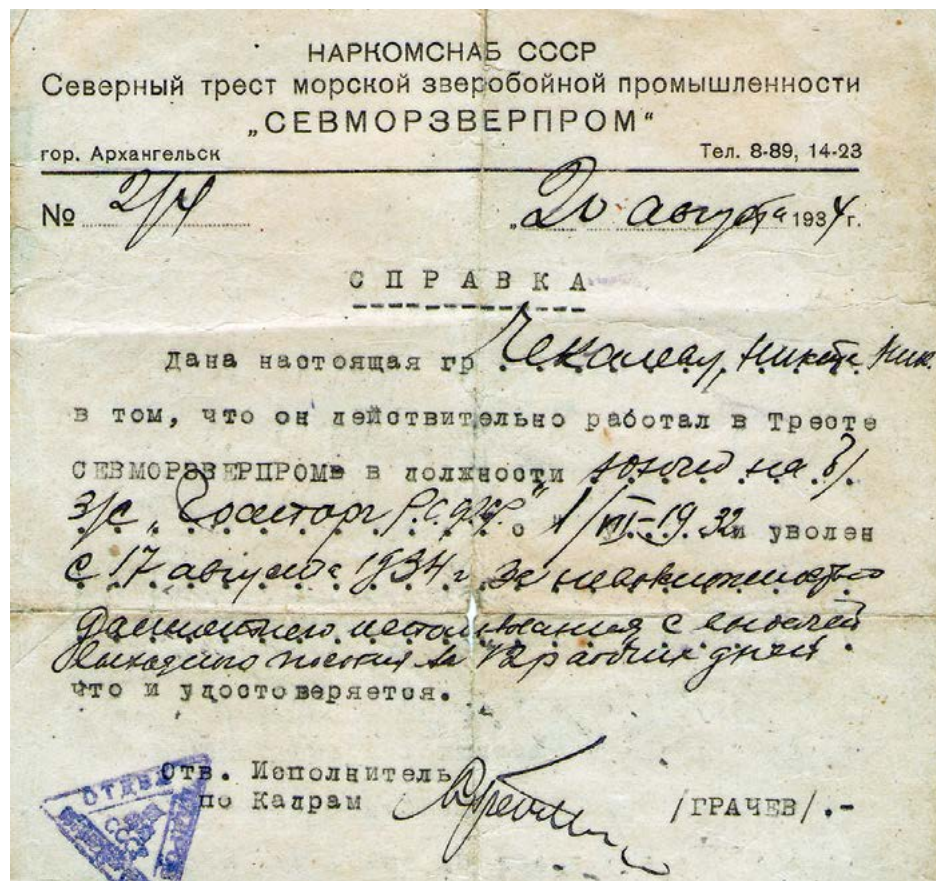 НАРКОМСНАБ СССР
Северный трест морской зверобойной промышленности
„СЕВМОРЗВЕРПРОМ“
гор. Архангельск Тел. 8-89, 14-23
№ 2/4 „20 августа 1934 г.
СПРАВКА
Дана настоящая гр Никите Ник.
в том, что он действительно работал в Тресте
СЕВМОРЗВЕРПРОМе в должности на
з/с „Госторг РСФСР“ с 1/ -1932 и уволен
с 17 августа 1934 г за невозможностью
дальнейшего использования с выдачей
выходного пособия за 12 рабочих дней.
что и удостоверяется.
Отв. Исполнитель
по Кадрам /ГРАЧЕВ/.-
ОТДЕЛ
СССР